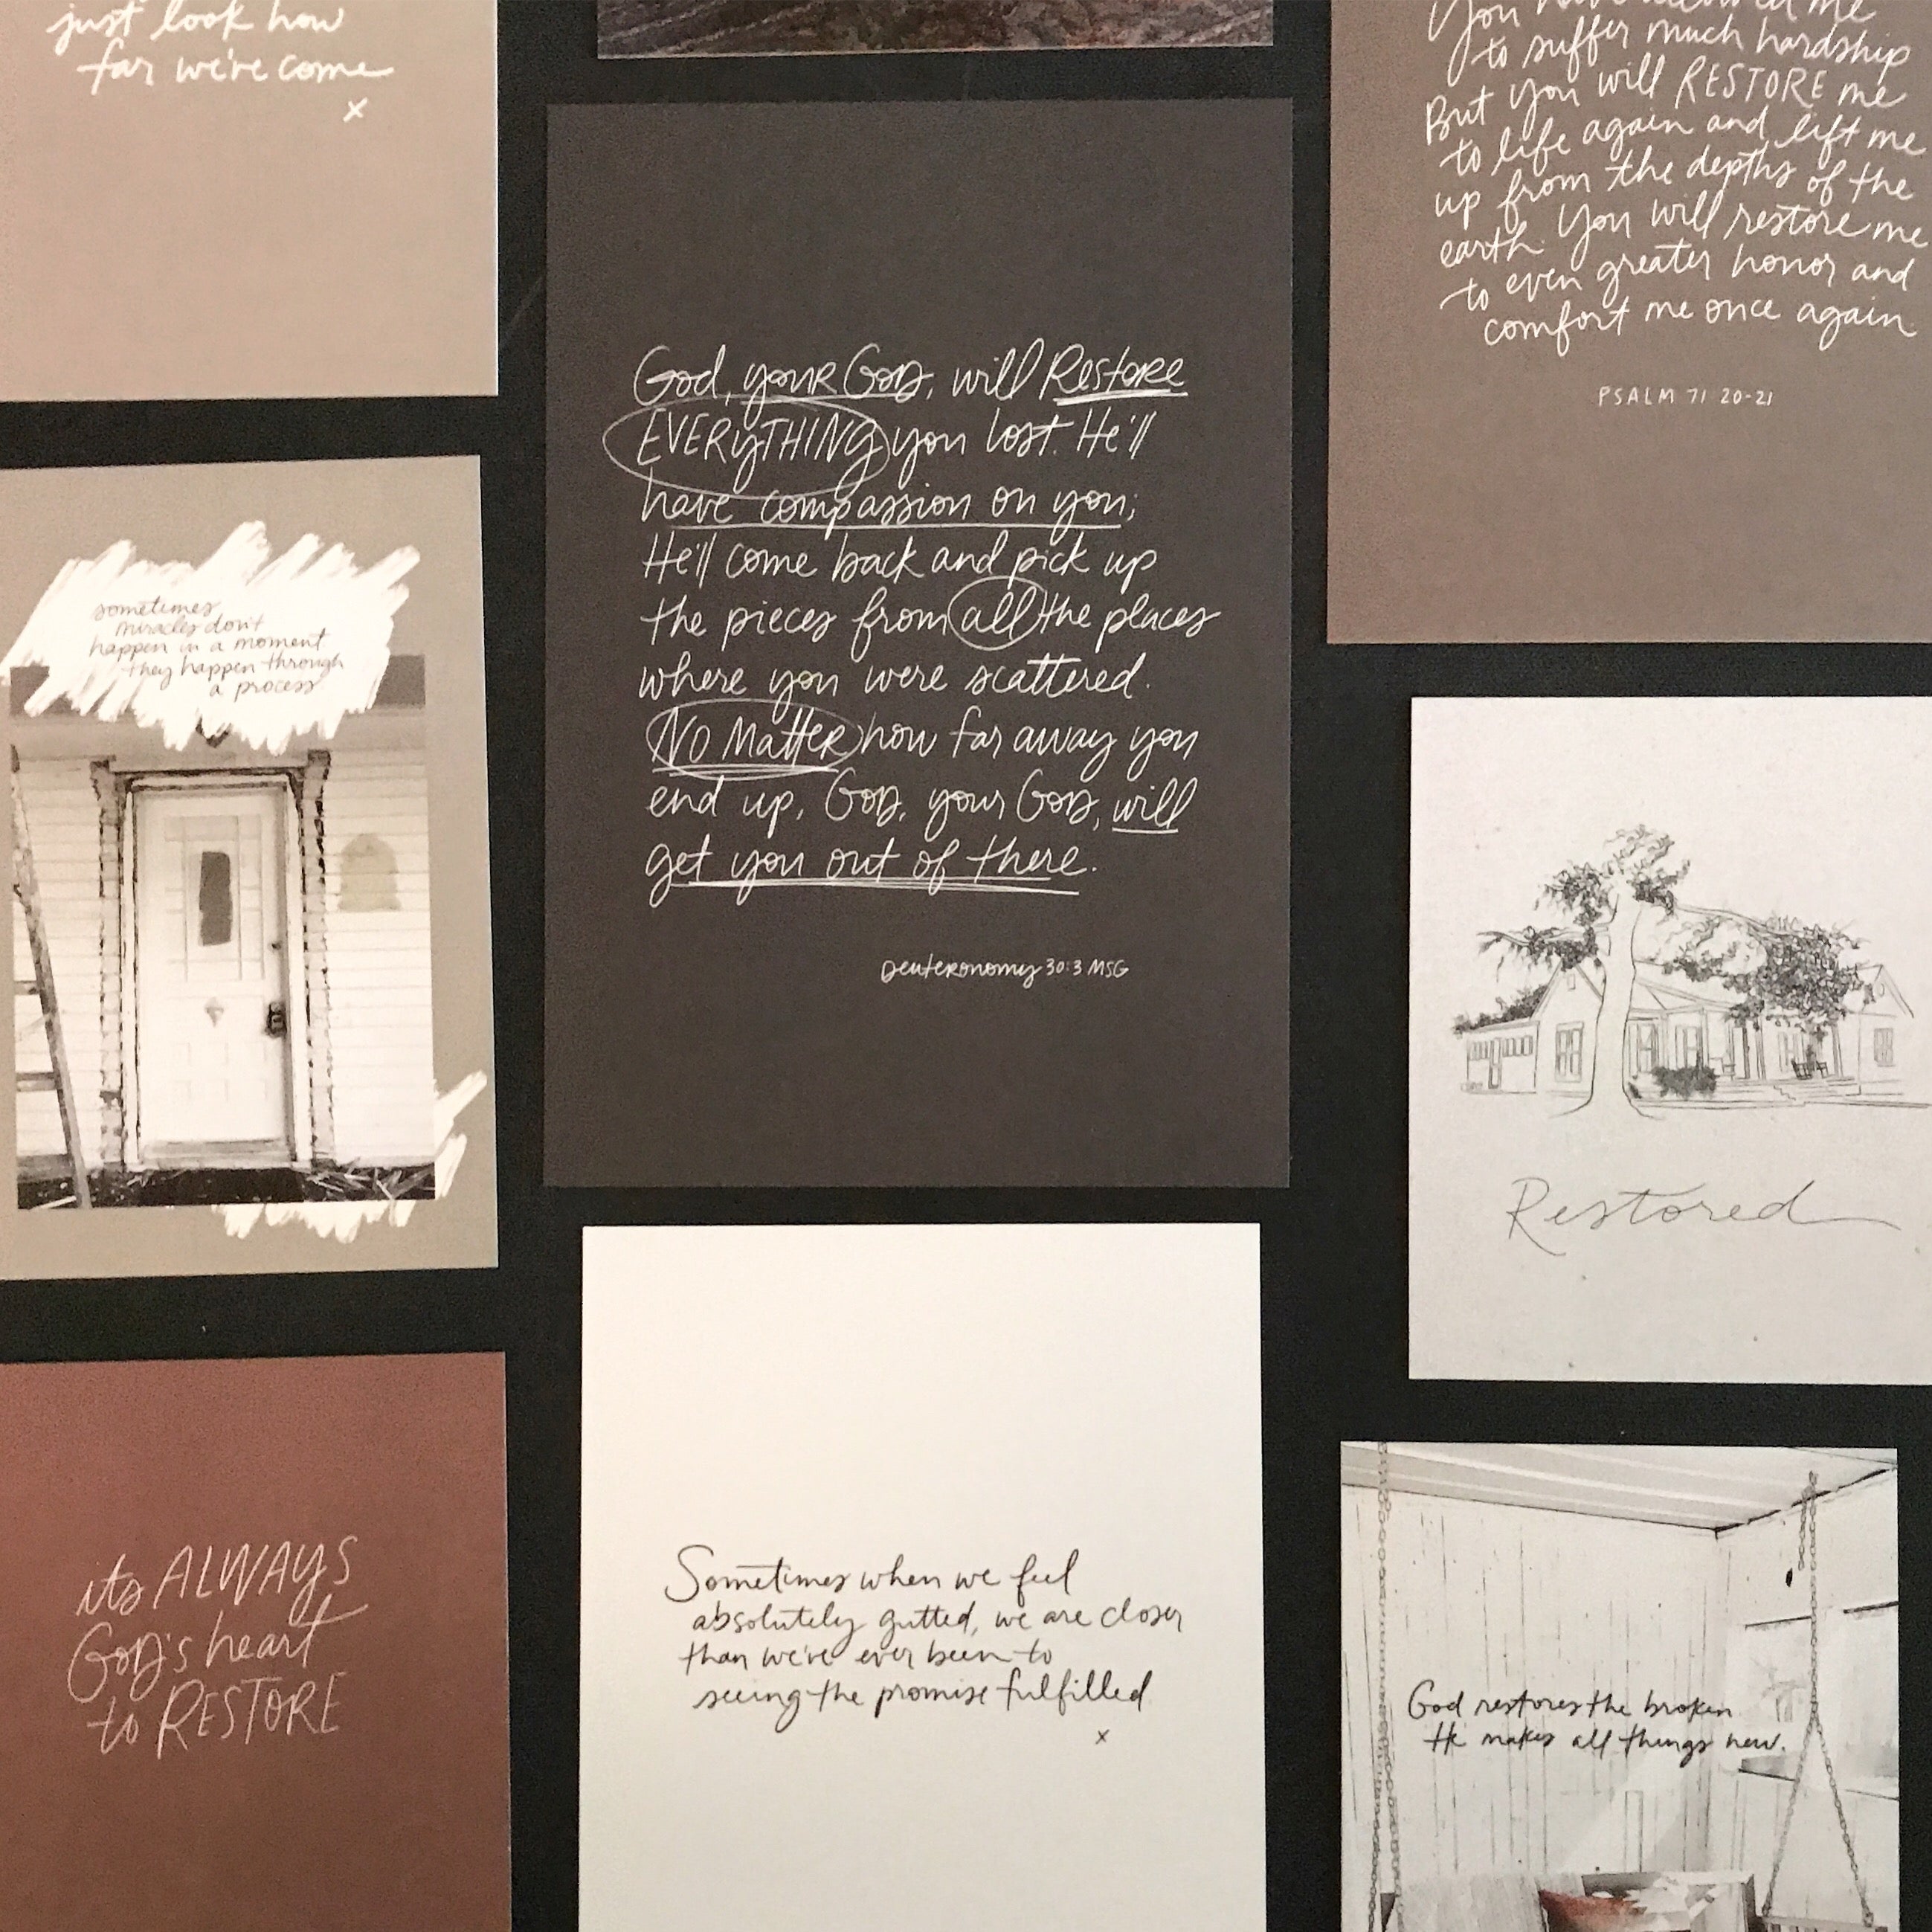 just look how
far we've come
x
sometimes
miracles don't
happen in a moment
they happen through
a process
its ALWAYS
GOD'S heart
to RESTORE
God, your GOD, will Restore
EVERYTHING you lost. He'll
have compassion on you;
He'll come back and pick up
the pieces from all the places
where you were scattered.
No Matter how far away you
end up, GOD, your GOD, will
get you out of there.
Deuteronomy 30:3 MSG
Sometimes when we feel
absolutely gutted, we are closer
than we've ever been to
seeing the promise fulfilled
x
You have allowed me
to suffer much hardship
But you will RESTORE me
to life again and lift me
up from the depths of the
earth. You will restore me
to even greater honor and
comfort me once again.
PSALM 71 20-21
Restored
God restores the broken
He makes all things new.